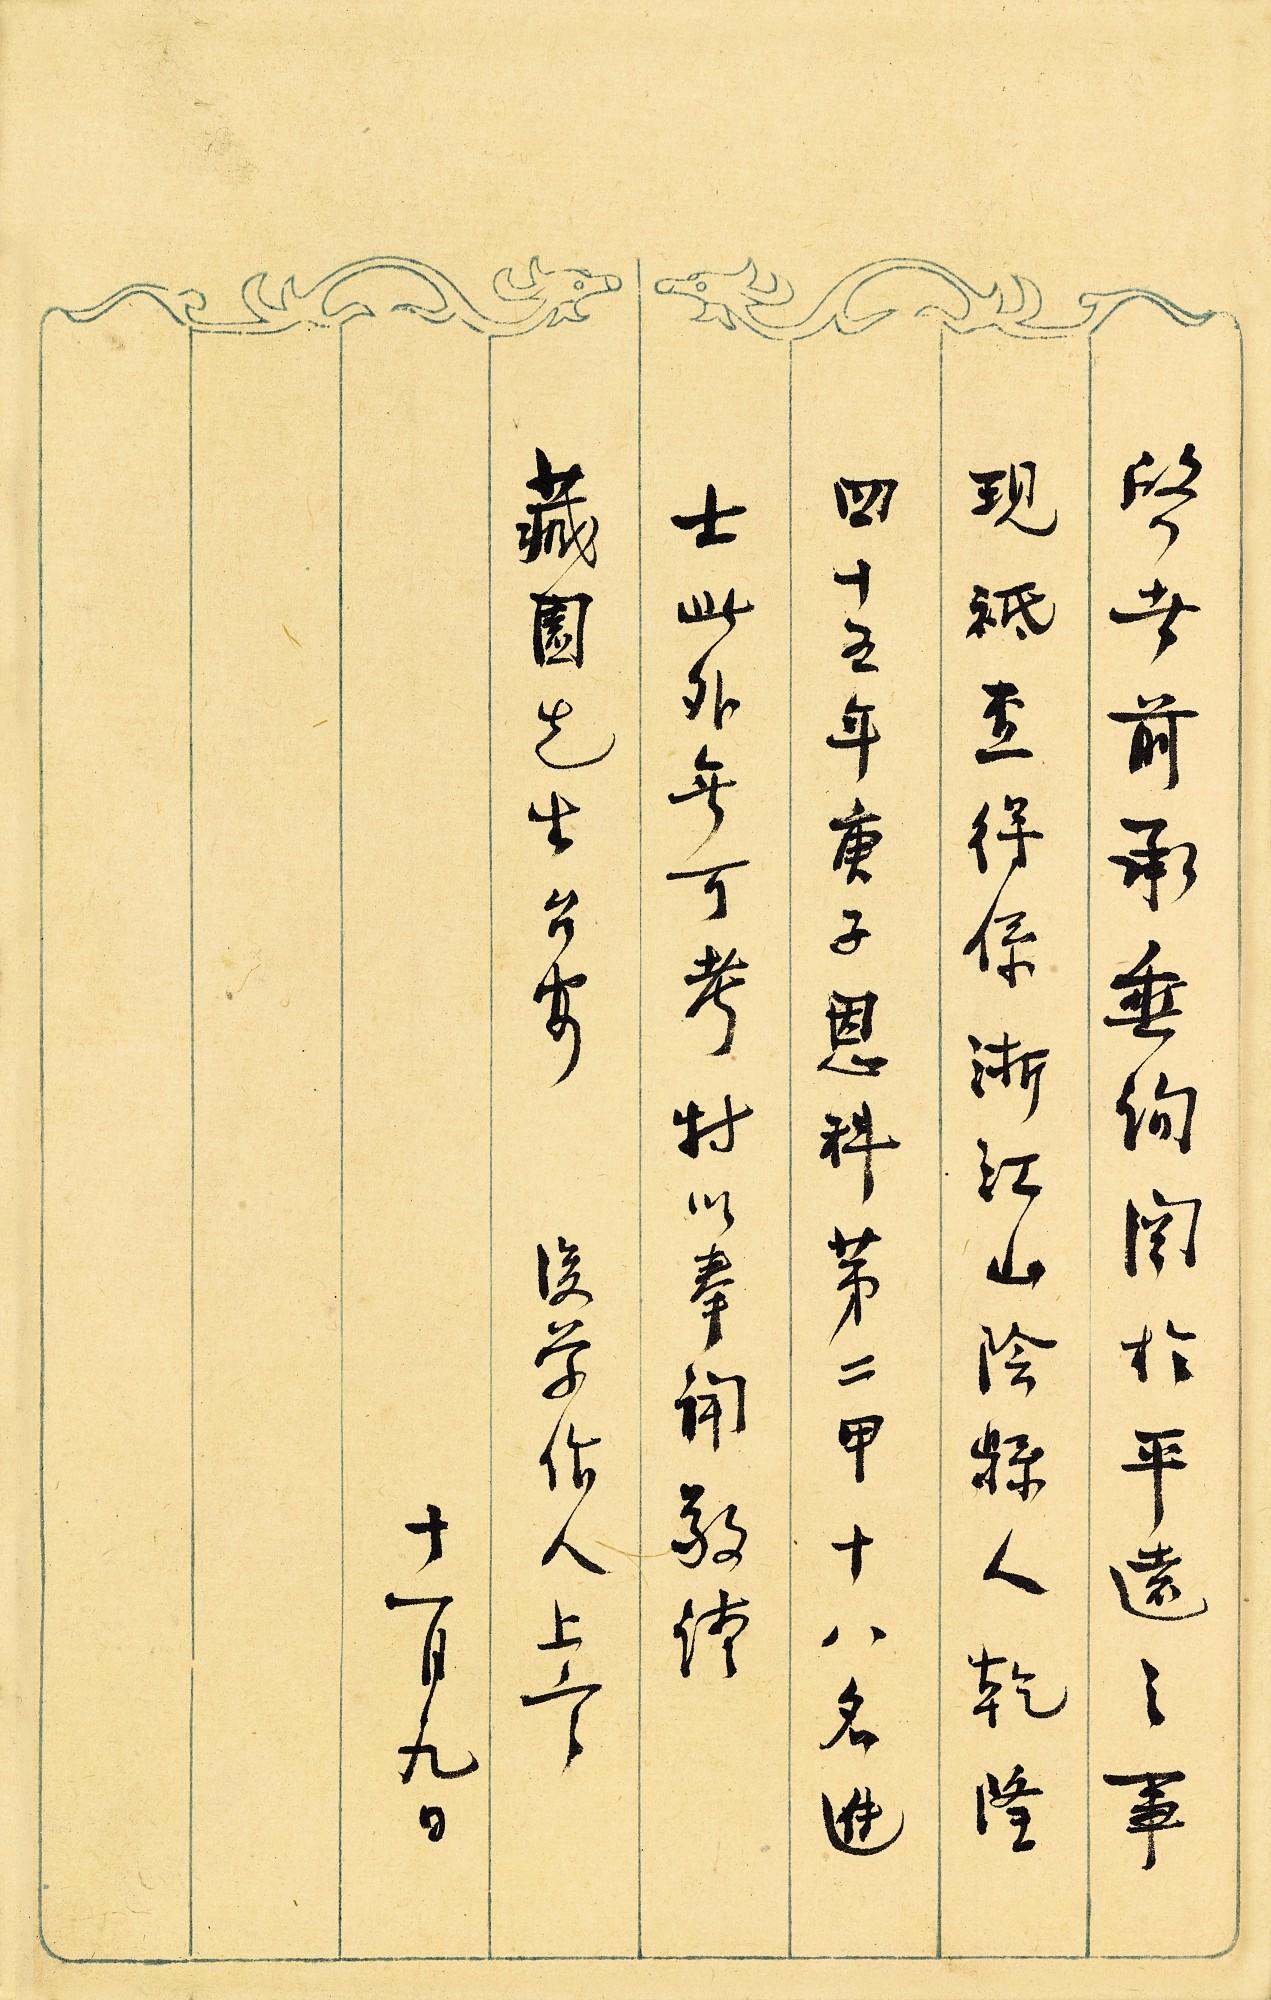 啓者前承垂詢関於平遠之事
現祗查得係浙江山陰縣人乾隆
四十五年庚子恩科第二甲十八名進
士此外無可考特以奉聞敬請
藏園先生台安 後學作人上言
十一月九日